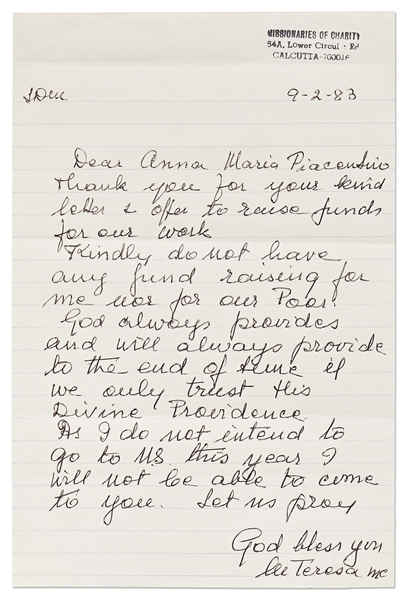 MISSIONARIES OF CHARITY
54A, Lower Circul · Rd
CALCUTTA-700016
9-2-83
Dear Anna Maria Piacentino
Thank you for your kind
letter & offer to raise funds
for our work
Kindly do not have
any fund raising for
me nor for our Poor.
God always provides
and will always provide
to the end of time if
we only trust His
Divine Providence
As I do not intend to
go to U.S. this year I
will not be able to come
to you. Let us pray
God bless you
M Teresa mc